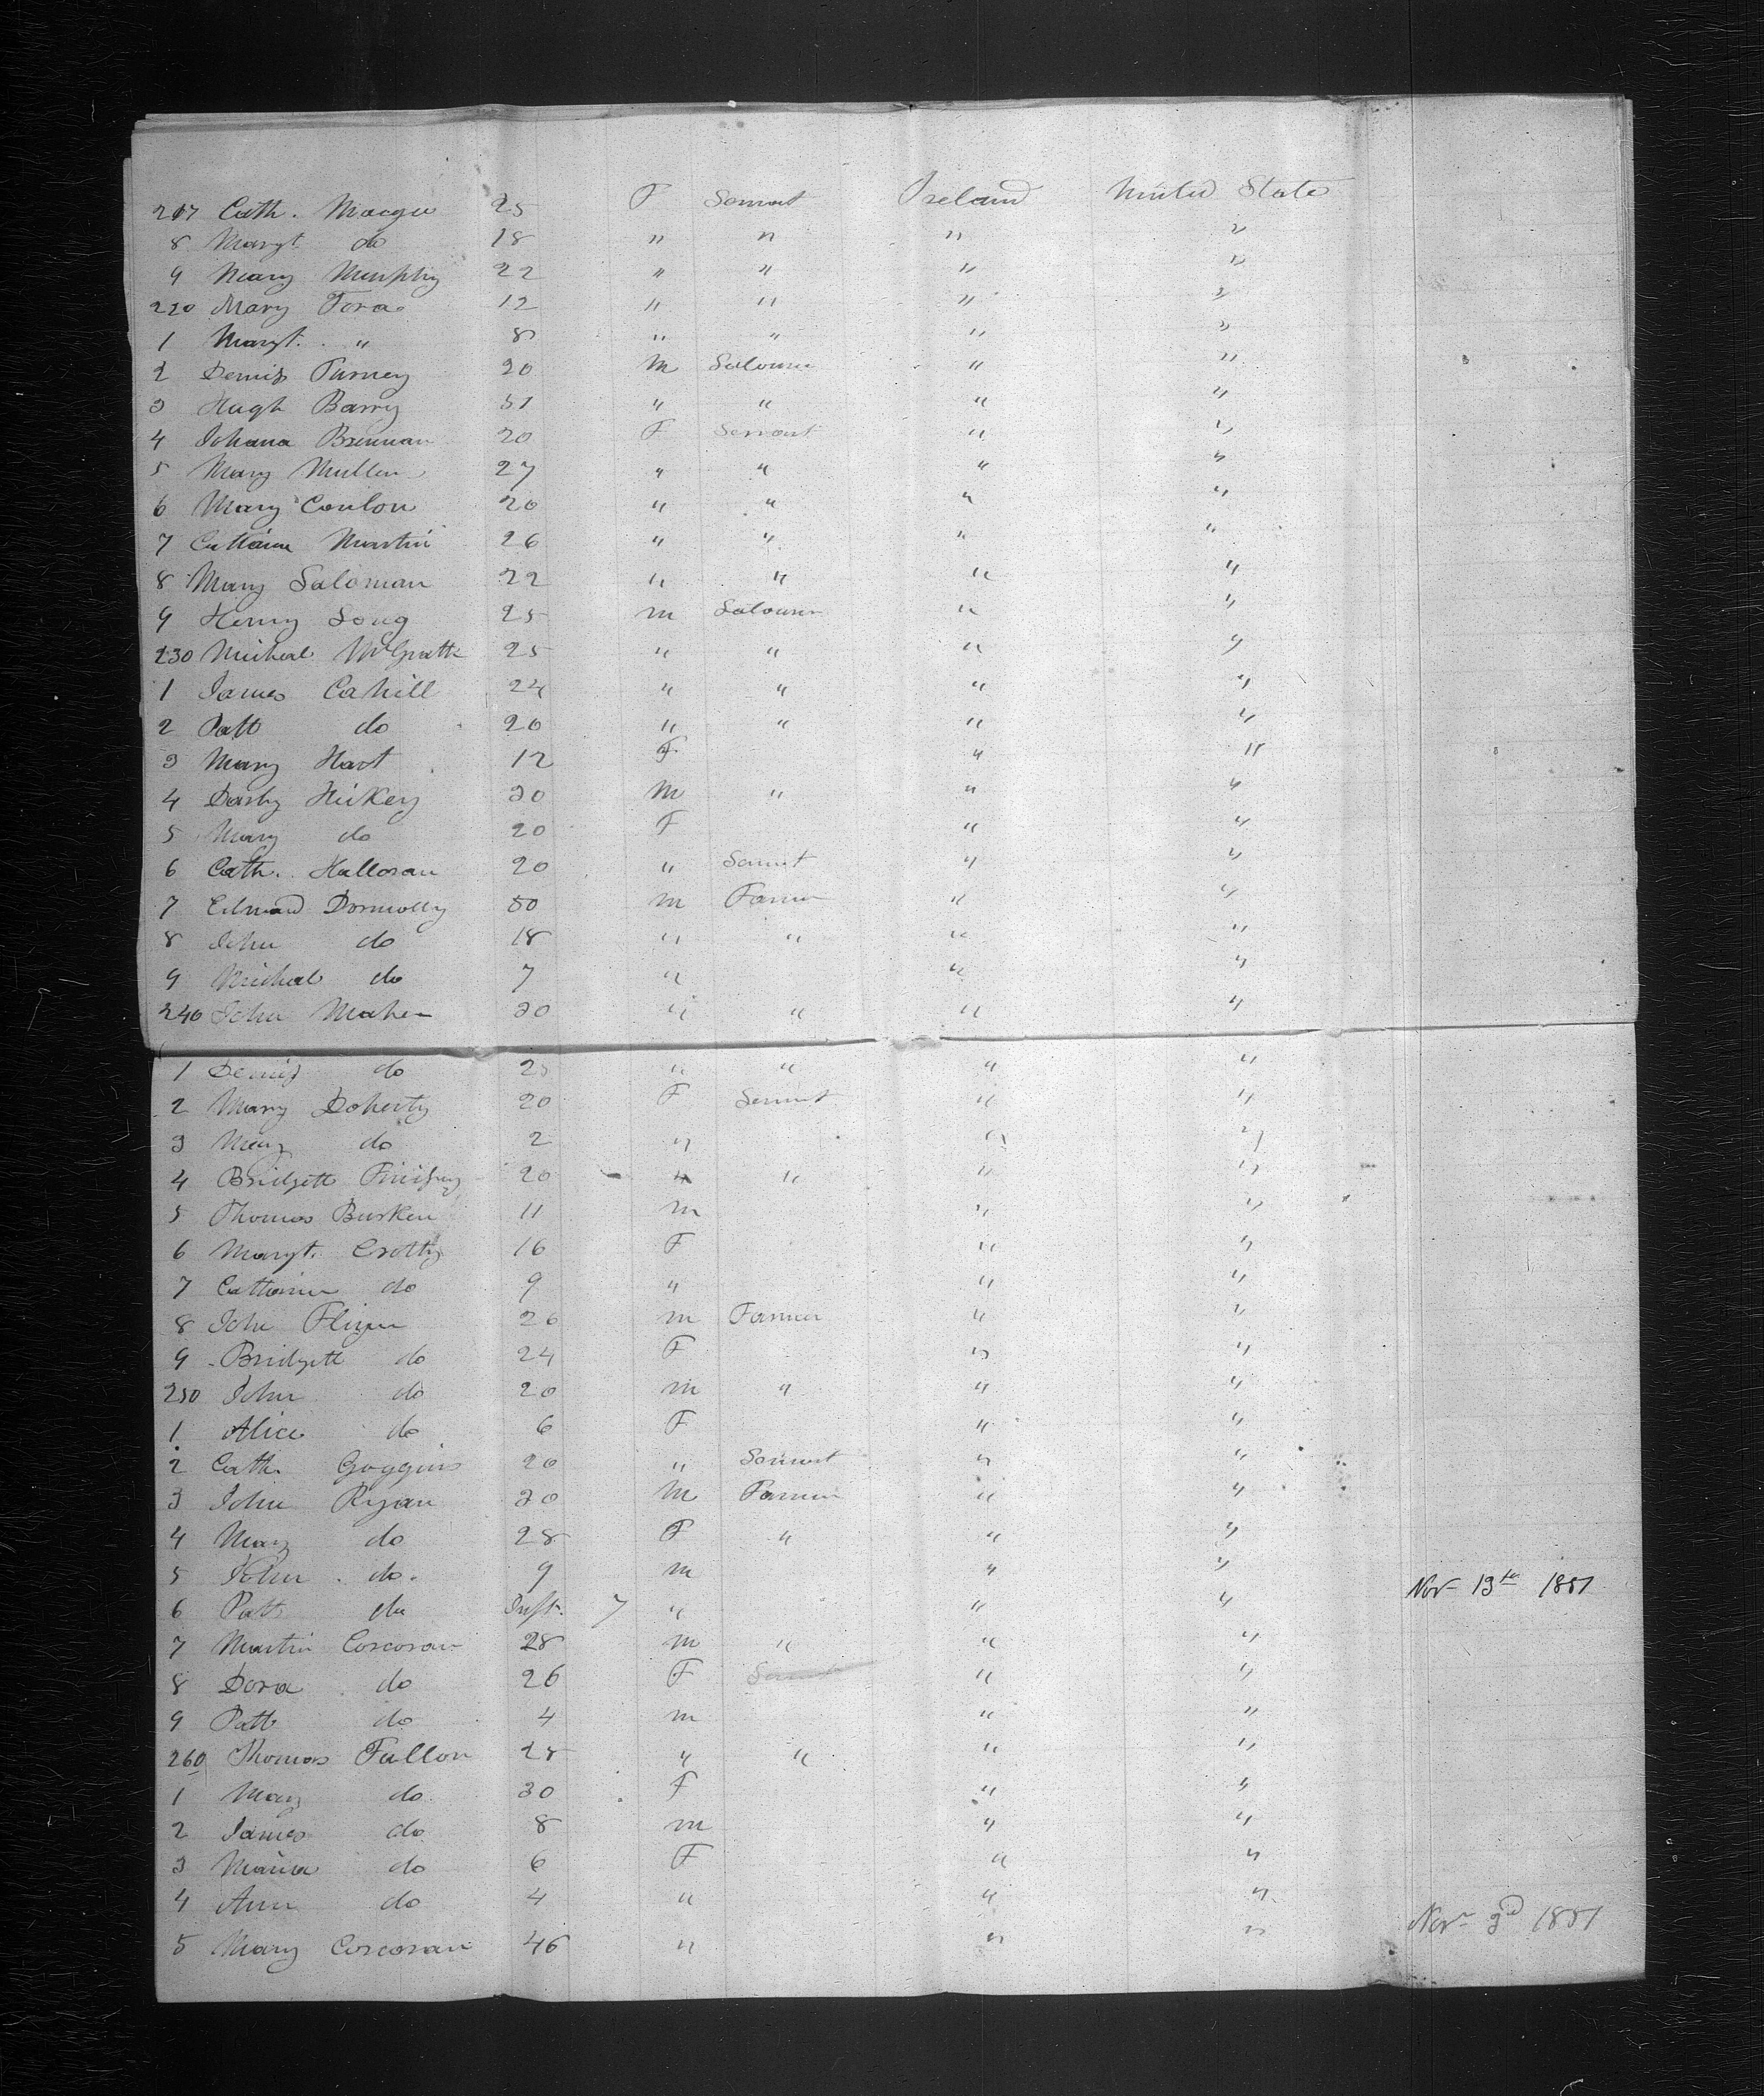 217 Cath. Magee 25 F Servant Ireland United State
8 Margt. do 18 " " " "
9 Mary Murphy 22 " " " "
220 Mary Fora 12 " " " "
1 Margt. " 8 " " " "
2 Dennis Turney 20 M Labourer " "
3 Hugh Barry 31 " " " "
4 Johana Brennan 20 F Servant " "
5 Mary Mullen 27 " " " "
6 Mary Conlon 20 " " " "
7 Catharine Martin 26 " " " "
8 Mary Saloman 22 " " " "
9 Henry Long 25 M Labourer " "
230 Micheal McGrath 25 " " " "
1 James Cahill 24 " " " "
2 Patt do 20 " " " "
3 Mary Hart 12 F " "
4 Darby Hickey 30 M " " "
5 Mary do 20 F " "
6 Cath. Halloran 20 " Servant " "
7 Edward Donnolly 50 M Farmer " "
8 John do 18 " " " "
9 Micheal do 7 " " "
240 John Maher 30 " " " "
1 Dennis do 25 " " " "
2 Mary Doherty 20 F Servant " "
3 Mary do 2 " " "
4 Bridgett 20 " " " "
5 Thomas Burken 11 M " "
6 Margt. Crotty 16 F " "
7 Catharine do 9 " " "
8 John Flynn 26 M Farmer " "
9 Bridgett do 24 F " "
250 John do 20 M " " "
1 Alice do 6 F " "
2 Cath. Goggins 20 " Servant " "
3 John Ryan 30 M Farmer " "
4 Mary do 28 F " " "
5 John do. 9 M " "
Nov 13th 1851
6 Patt do Inft. 7 " " "
7 Martin Corcoran 28 M " " "
8 Dora do 26 F Servant " "
9 Patt do 4 M " "
260 Thomas Fallon 28 " " " "
1 Mary do 30 F " "
2 James do 8 M " "
3 Maria do 6 F " "
4 Ann do 4 " " "
Nov 3d 1851
5 Mary Corcoran 46 " " "